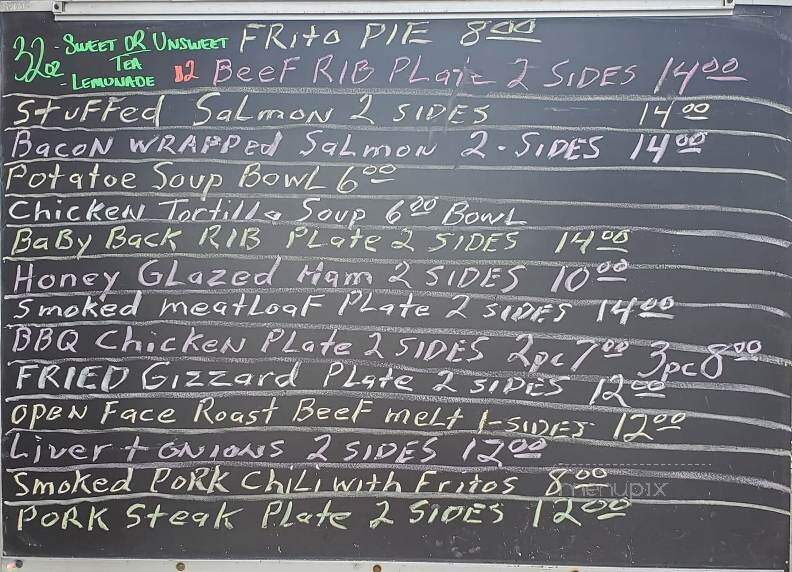 32oz - SWEET OR UNSWEET TEA
- LEMONADE $2
FRITO PIE 8.00
BeeF RIB PLate 2 SIDES 14.00
Stuffed Salmon 2 SIDES 14.00
Bacon WRAPPed Salmon 2-SIDES 14.00
Potatoe Soup Bowl 6.00
Chicken Tortilla Soup 6.00 Bowl
BaBy Back RIB PLate 2 SIDES 14.00
Honey GLazed Ham 2 SIDES 10.00
Smoked meatLoaF PLate 2 SIDES 14.00
BBQ Chicken PLate 2 SIDES 2pc 7.00 3pc 8.00
FRIED Gizzard PLate 2 SIDES 12.00
OPEN Face Roast BeeF melt 1-SIDES 12.00
Liver + ONIONS 2 SIDES 12.00
Smoked PoRK ChiLi with Fritos 8.00
PORK Steak Plate 2 SIDES 12.00
menupix